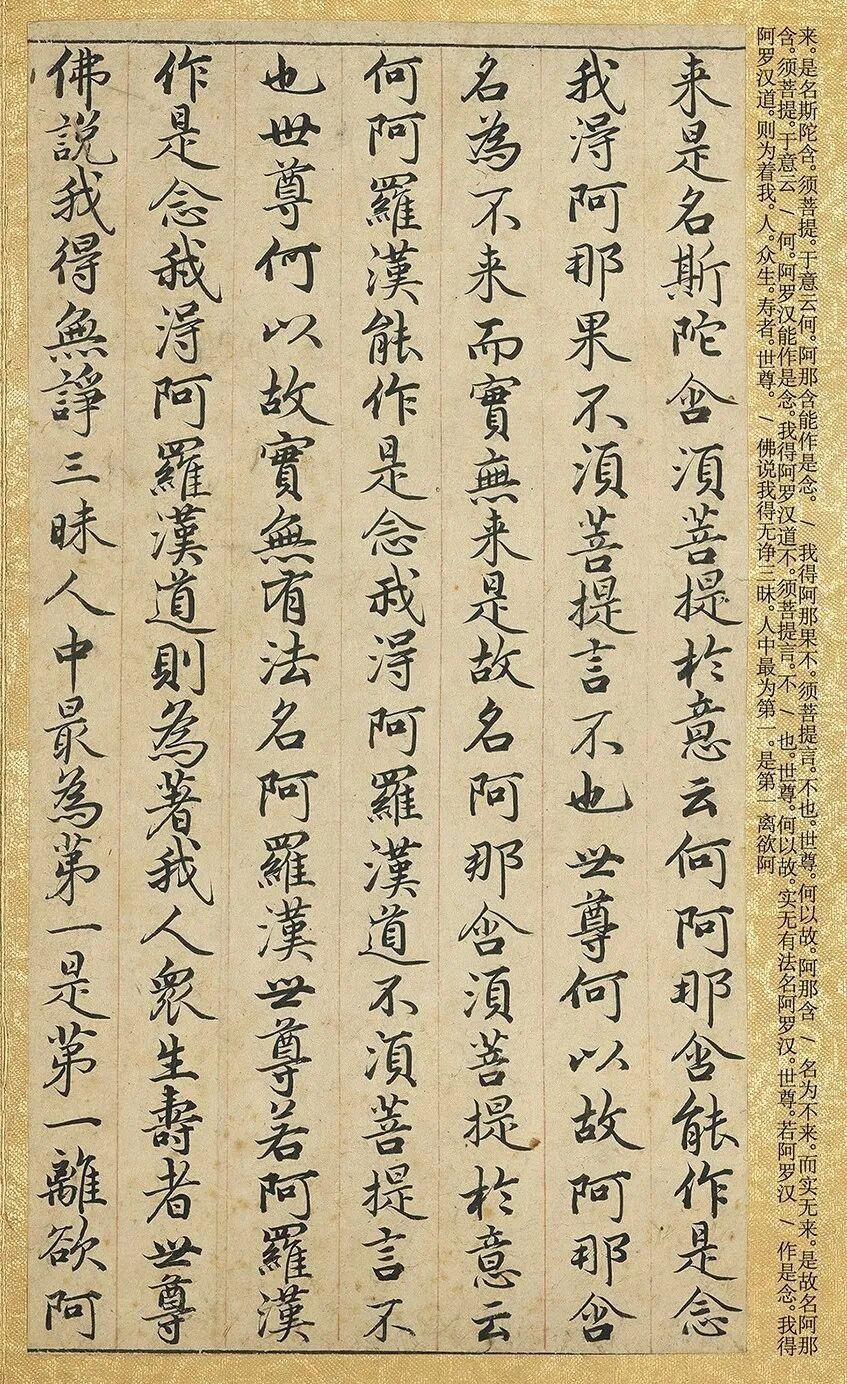 来。是名斯陀含。须菩提。于意云何。阿那含能作是念。/我得阿那果不。须菩提言。不也。世尊。何以故。阿那含/名为不来。而实无来。是故名阿那
含。须菩提。于意云/何。阿罗汉能作是念。我得阿罗汉道不。须菩提言。不/也。世尊。何以故。实无有法名阿罗汉。世尊。若阿罗汉/作是念。我得
阿罗汉道。则为着我。人。众生。寿者。世尊。/佛说我得无诤三昧。人中最为第一。是第一离欲阿
来是名斯陀含須菩提於意云何阿那含能作是念
我得阿那果不須菩提言不也世尊何以故阿那含
名為不来而實無来是故名阿那含須菩提於意云
何阿羅漢能作是念我得阿羅漢道不須菩提言不
也世尊何以故實無有法名阿羅漢世尊若阿羅漢
作是念我得阿羅漢道則為著我人眾生壽者世尊
佛說我得無諍三昧人中最為第一是第一離欲阿